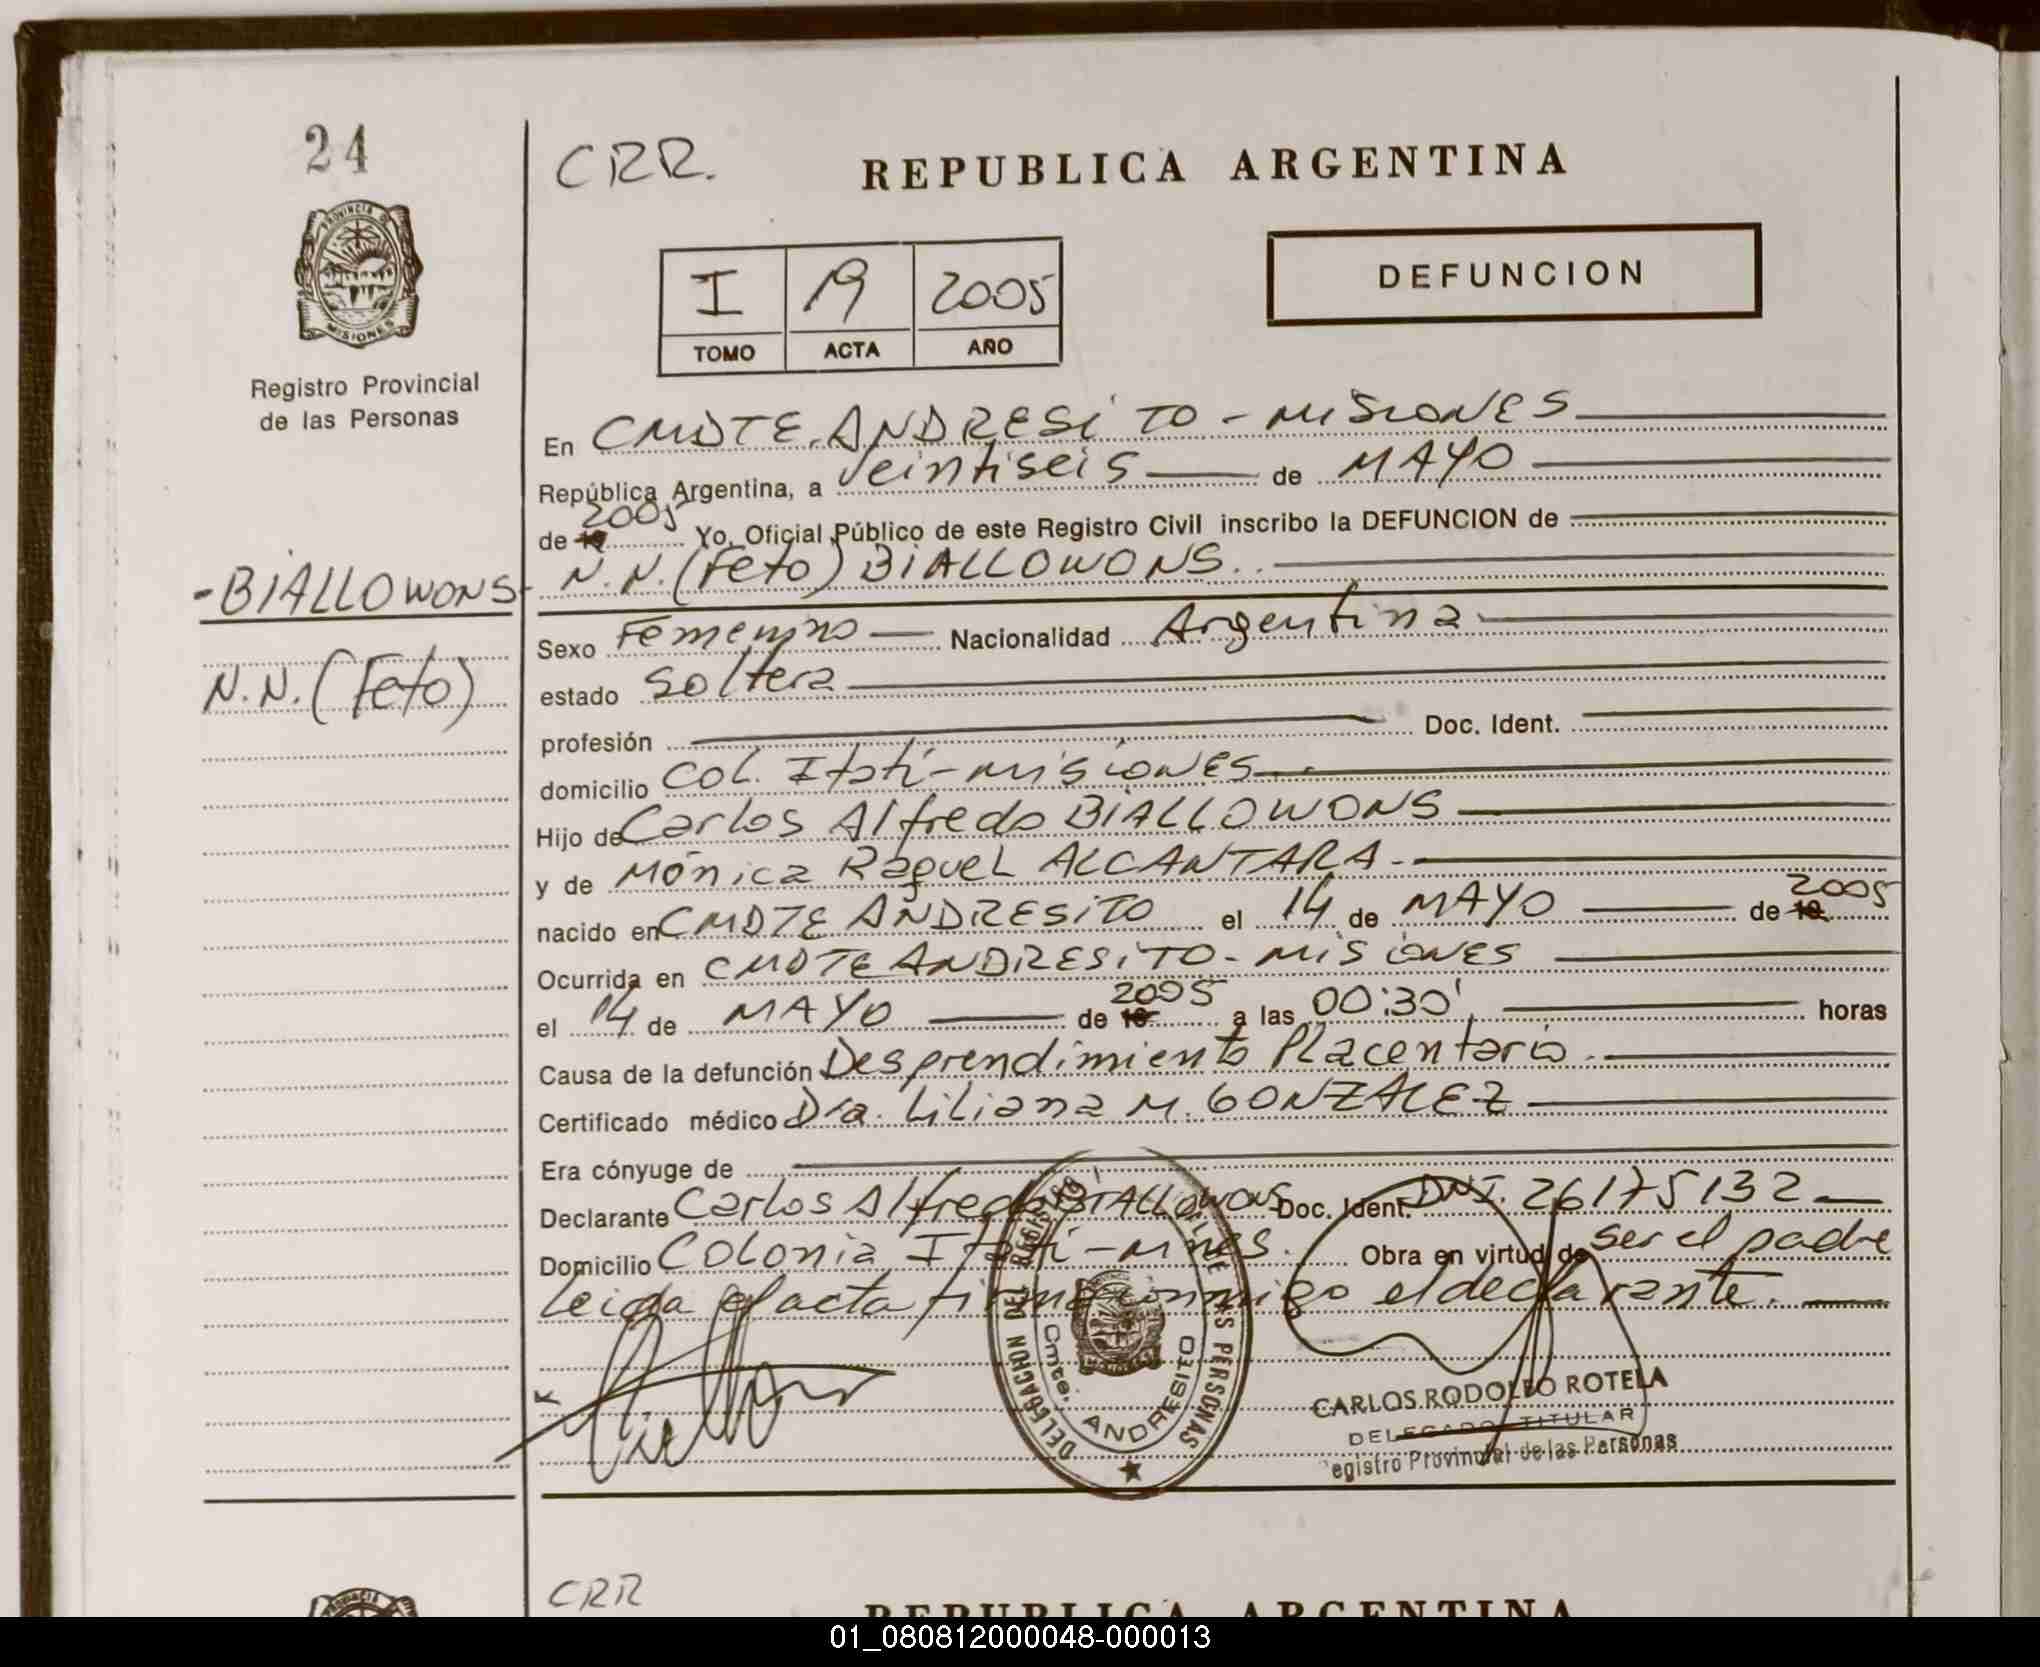 24
CRR.
REPUBLICA ARGENTINA
PROVINCIA DE
MISIONES
I 19 2005
TOMO ACTA AÑO
DEFUNCION
Registro Provincial
de las Personas
En CMDTE. ANDRESITO - MISIONES
República Argentina, a veintiseis de MAYO
de 19 2005 Yo, Oficial Público de este Registro Civil inscribo la DEFUNCION de
N.N. (Feto) BIALLOWONS..
-BIALLOWONS-
N.N. (Feto)
Sexo Femenino Nacionalidad Argentina
estado Soltera
profesión Doc. Ident.
domicilio Col. Itatí - Misiones
Hijo de Carlos Alfredo BIALLOWONS
y de Mónica Raquel ALCANTARA.-
nacido en CMDTE ANDRESITO el 14 de MAYO de 19 2005
Ocurrida en CMDTE ANDRESITO - MISIONES
el 14 de MAYO de 19 2005 a las 00:30' horas
Causa de la defunción Desprendimiento Placentario.
Certificado médico Dra. Liliana M. GONZALEZ
Era cónyuge de
Declarante Carlos Alfredo BIALLOWONS Doc. Ident. DNI. 26175132
Domicilio Colonia Itatí - Mnes. Obra en virtud de ser el padre
Leida el acta firma conmigo el declarante.
DELEGACION DEL REGISTRO DE LAS PERSONAS
Cmte. ANDRESITO
CARLOS RODOLFO ROTELA
DELEGADO TITULAR
egistro Provincial de las Personas
CRR
REPUBLICA ARGENTINA
01_080812000048-000013